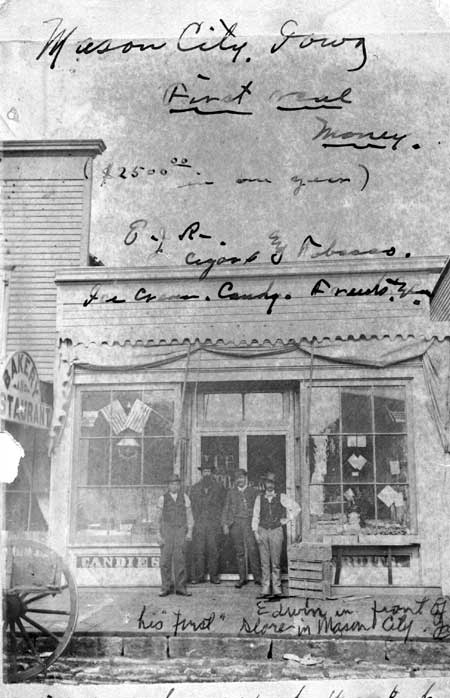 Mason City, Iowa
First real
Money.
($2500⁰⁰ in one year)
E. J. R.
Cigars & Tobacco.
Ice Cream. Candy. Fruits.
BAKERY
AND
STAURANT
CANDIES
FRUITS
Edwin in front of
his "first" store in Mason City.